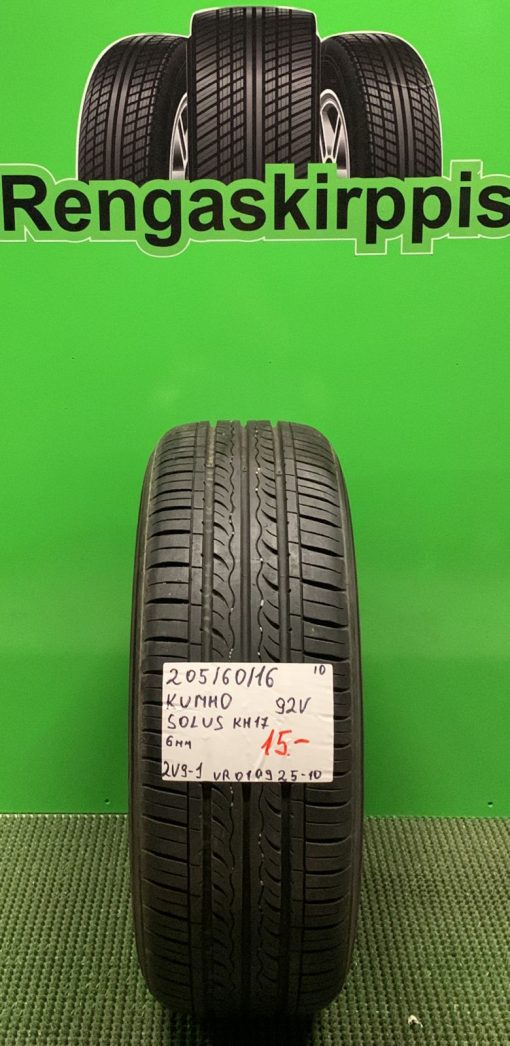 Rengaskirppis
205/60/16 10
KUMHO 92V
SOLUS KH17
6mm 15.-
2V9-1 VR010925-10